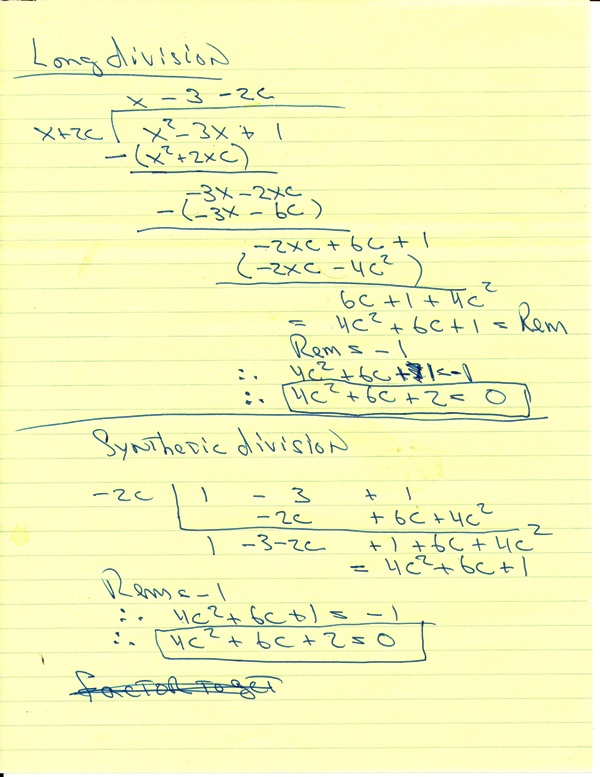 Long division
x - 3 - 2c
x+2c x² - 3x + 1
- (x² + 2xc)
-3x - 2xc
- (-3x - 6c)
-2xc + 6c + 1
(-2xc - 4c²)
6c + 1 + 4c²
= 4c² + 6c + 1 = Rem
Rem = -1
∴ 4c² + 6c + 1 = -1
∴ 4c² + 6c + 2 = 0
Synthetic division
-2c 1 - 3 + 1
-2c + 6c + 4c²
1 -3-2c +1 + 6c + 4c²
= 4c² + 6c + 1
Rem = -1
∴ 4c² + 6c + 1 = -1
∴ 4c² + 6c + 2 = 0
factor to get